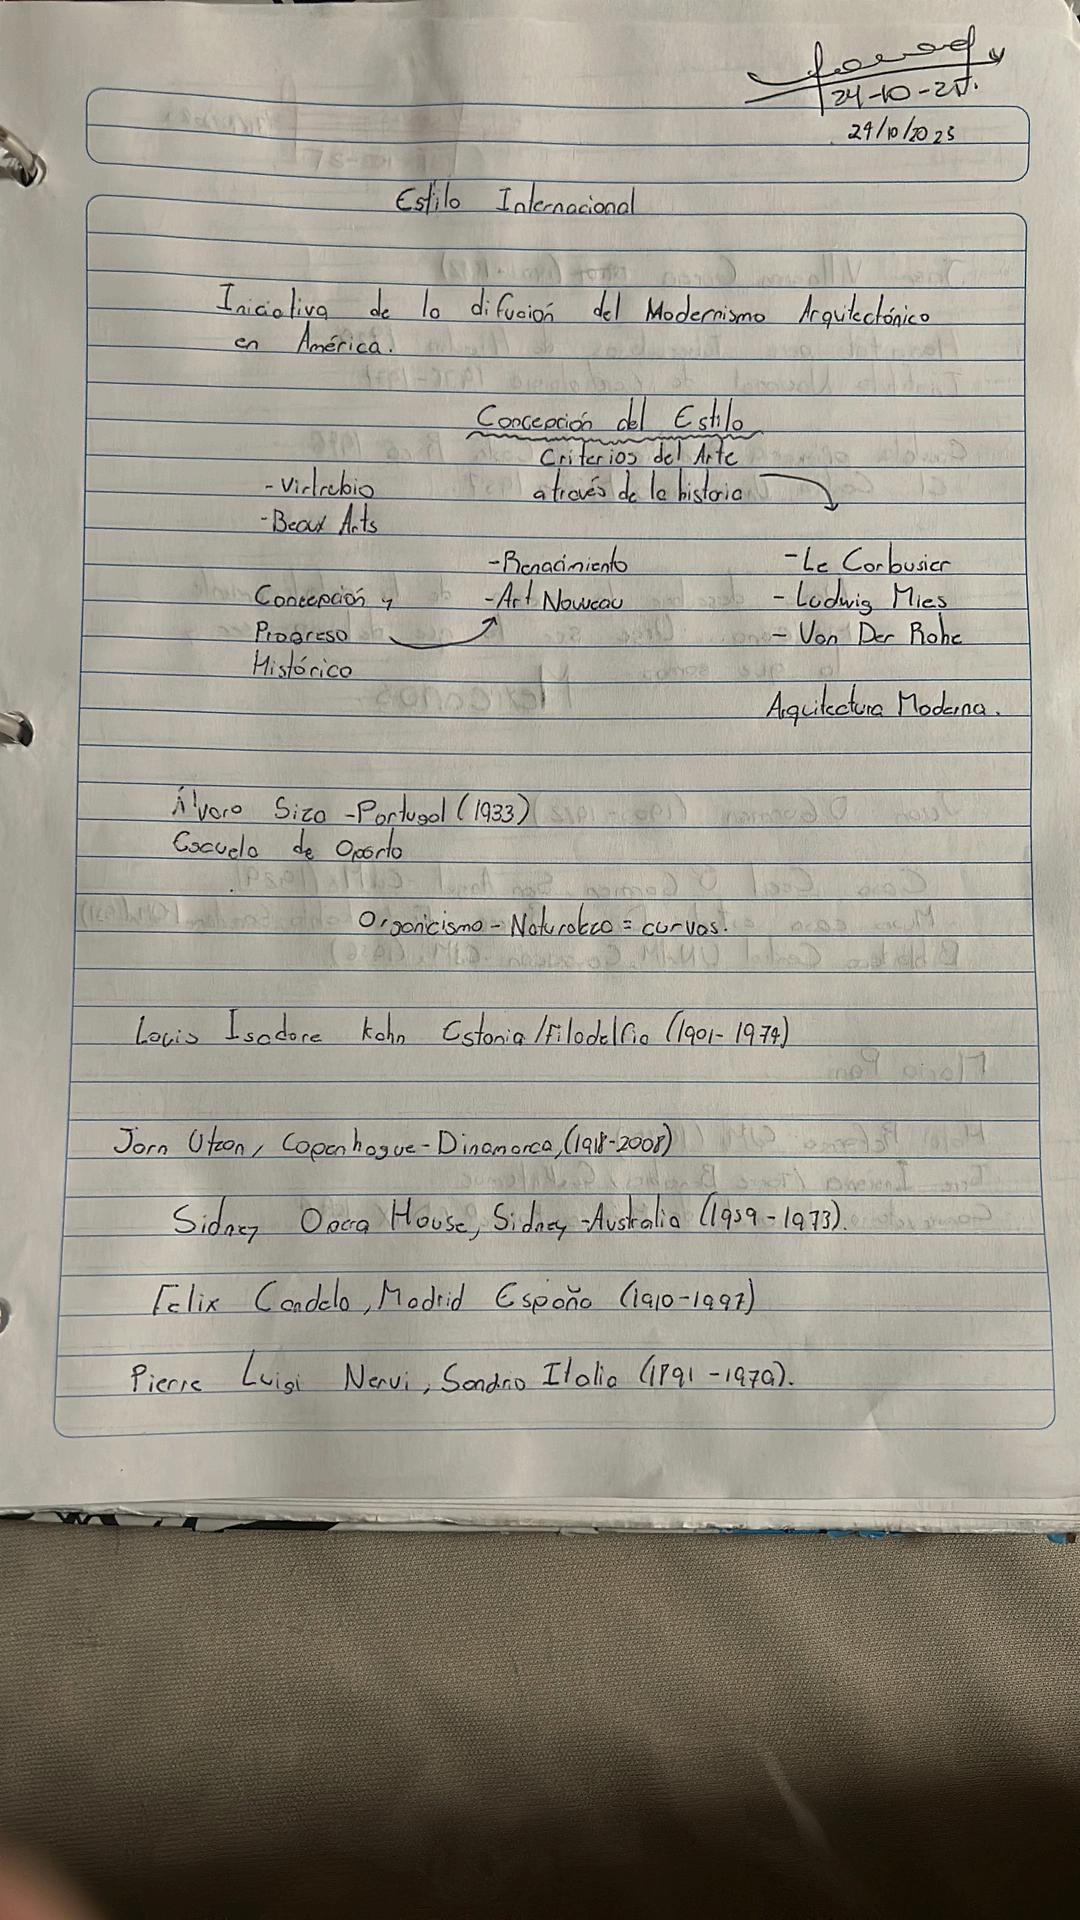 24-10-25.
24/10/2025
Estilo Internacional
Iniciativa de la difución del Modernismo Arquitectónico
en América.
Concepción del Estilo
Criterios del Arte
a través de la historia
- Virtrubio
- Beaux Arts
Concepción y
Progreso
Histórico
- Renacimiento
- Art Nouveau
- Le Corbusier
- Ludwig Mies
- Van Der Rohe
Arquitectura Moderna.
Álvaro Siza - Portugal (1933)
Escuela de Oporto
Organicismo - Naturaleza = curvas.
Louis Isadore Kahn Estonia/Filadelfia (1901-1974)
Jorn Utzon, Copenhague-Dinamarca, (1918-2008)
Sidney Opera House, Sidney -Australia (1959-1973).
Felix Candela, Madrid España (1910-1997)
Pierre Luigi Nervi, Sondrio Italia (1891-1979).